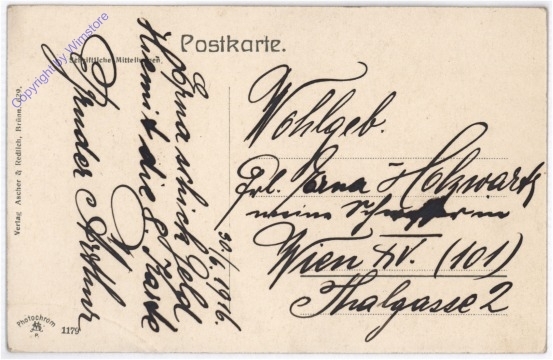 Postkarte.
Schriftliche Mitteilungen
Erna schick Geld
Hiermit die 8. Karte
Bruder Arthur
30./6. 1916.
Wohlgeb.
Frl. Erna Holzwarth
meine Schwester in
Wien XV. (101)
Thalgasse 2
Verlag Ascher & Redlich, Brünn.
Photochrom
1179
Copyright by Wimstore